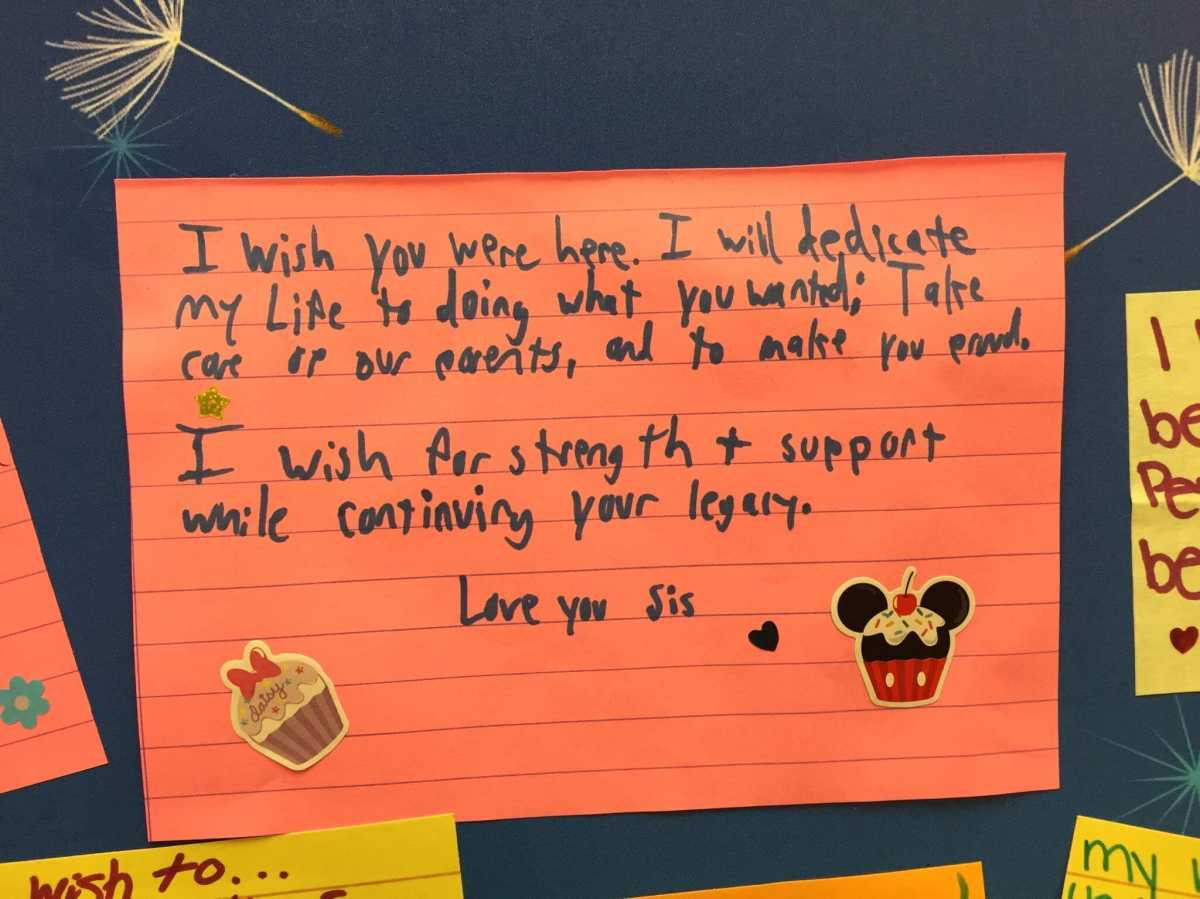 I wish you were here. I will dedicate
my Life to doing what you wanted; Take
care of our parents, and to make you proud.
I wish for strength + support
while continuing your legacy.
Love you Sis
daisy
I
be
Pe
be
wish to...
my